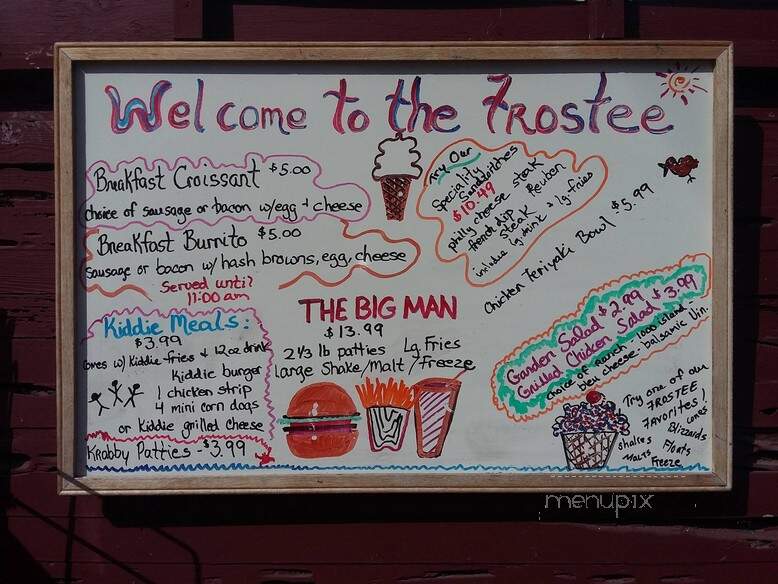 Welcome to the Frostee
Breakfast Croissant $5.00
choice of sausage or bacon w/egg + cheese
Breakfast Burrito $5.00
sausage or bacon w/ hash browns, egg, cheese
Served until
11:00 am
Try Our
Speciality
Sandwitches
$10.49
philly cheese steak
french dip Reuben
steak
include lg. drink + lg. fries
Chicken Teriyaki Bowl $5.99
Kiddie Meals:
$3.99
comes w/ Kiddie fries + 12oz drink
Kiddie burger
1 chicken strip
4 mini corn dogs
or Kiddie grilled cheese
Krabby Patties - $3.99
THE BIG MAN
$13.99
2 1/3 lb patties Lg Fries
Large Shake/Malt/Freeze
Garden Salad $2.99
Grilled Chicken Salad $3.99
choice of ranch - 1000 island
bleu cheese - balsamic Vin.
Try one of our
FROSTEE
FAVORITES!
cones
Blizzards
Shakes
Floats
Malts
Freeze
menupix